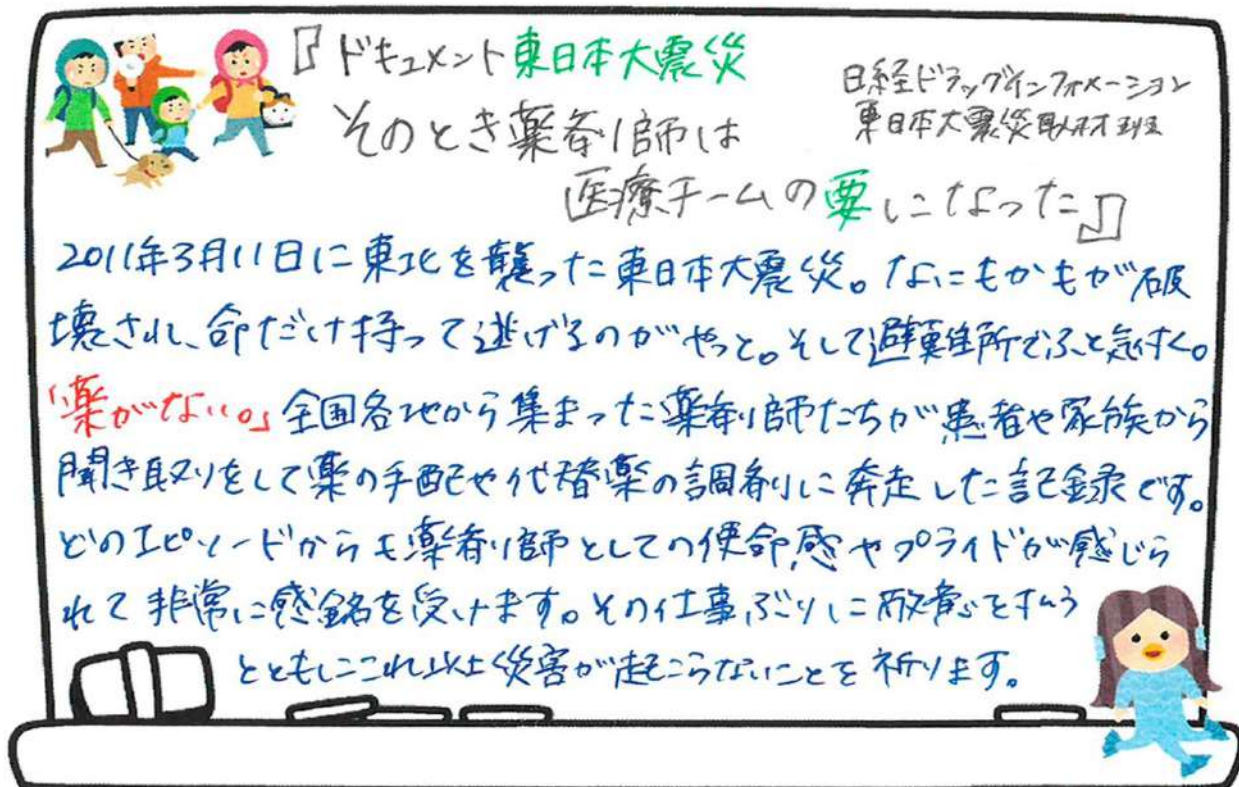 『ドキュメント東日本大震災
そのとき薬剤師は
医療チームの要になった』
日経ドラッグインフォメーション
東日本大震災取材班
2011年3月11日に東北を襲った東日本大震災。なにもかもが破
壊され、命だけ持って逃げるのがやっと。そして避難所でふと気付く。
「薬がない。」全国各地から集まった薬剤師たちが患者や家族から
聞き取りをして薬の手配や代替薬の調剤に奔走した記録です。
どのエピソードからも薬剤師としての使命感やプライドが感じら
れて非常に感銘を受けます。その仕事ぶりに敬意を払う
とともにこれ以上災害が起こらないことを祈ります。